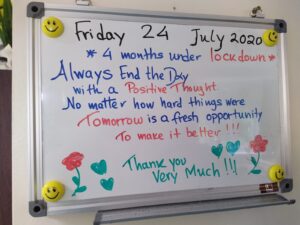 Friday 24 July 2020
* 4 months under lockdown *
Always End the Day
with a Positive Thought
No matter how hard things were
Tomorrow is a fresh opportunity
To make it better !!!
Thank you
Very Much !!!